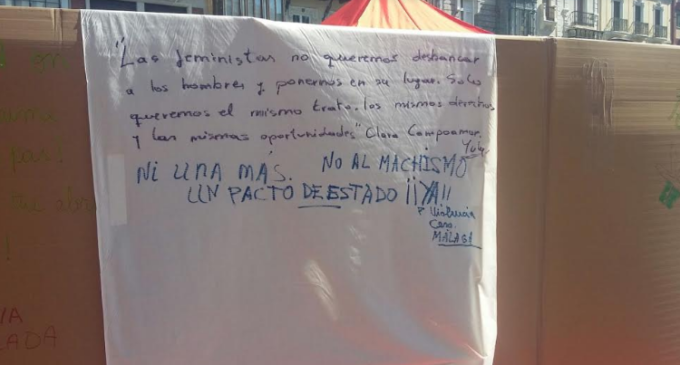 "Las feministas no queremos desbancar
a los hombres y ponernos en su lugar. Solo
queremos el mismo trato, los mismos derechos
y las mismas oportunidades" Clara Campoamor.
NI UNA MÁS. NO AL MACHISMO
UN PACTO DE ESTADO ¡¡YA!!
MÁLAGA
pas!
ADA